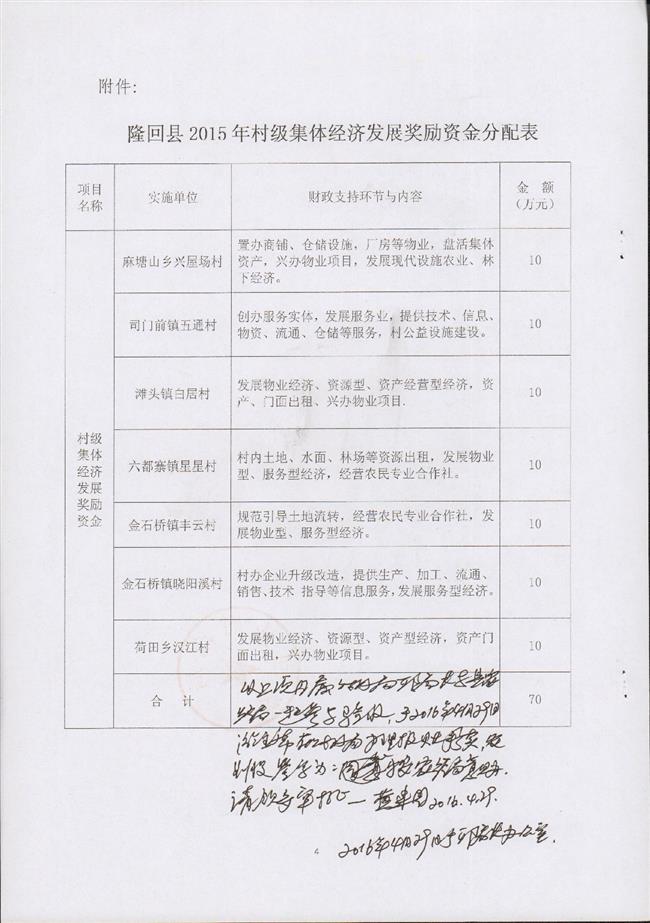 附件:
隆回县2015年村级集体经济发展奖励资金分配表
项目
名称
实施单位
财政支持环节与内容
金 额
(万元)
村级
集体
经济
发展
奖励
资金
麻塘山乡兴屋场村
置办商铺、仓储设施,厂房等物业,盘活集体
资产,兴办物业项目,发展现代设施农业、林
下经济。
10
司门前镇五通村
创办服务实体,发展服务业,提供技术、信息、
物资、流通、仓储等服务,村公益设施建设。
10
滩头镇白居村
发展物业经济、资源型、资产经营型经济,资
产、门面出租、兴办物业项目.
10
六都寨镇星星村
村内土地、水面、林场等资源出租,发展物业
型、服务型经济,经营农民专业合作社。
10
金石桥镇丰云村
规范引导土地流转,经营农民专业合作社,发
展物业型、服务型经济。
10
金石桥镇晓阳溪村
村办企业升级改造,提供生产、加工、流通、
销售、技术 指导等信息服务,发展服务型经济。
10
荷田乡汉江村
发展物业经济、资源型、资产型经济,资产门
面出租,兴办物业项目。
10
合 计
70
于2016年4月29日
2016.4.29.
2016年4月29日于 办公室.